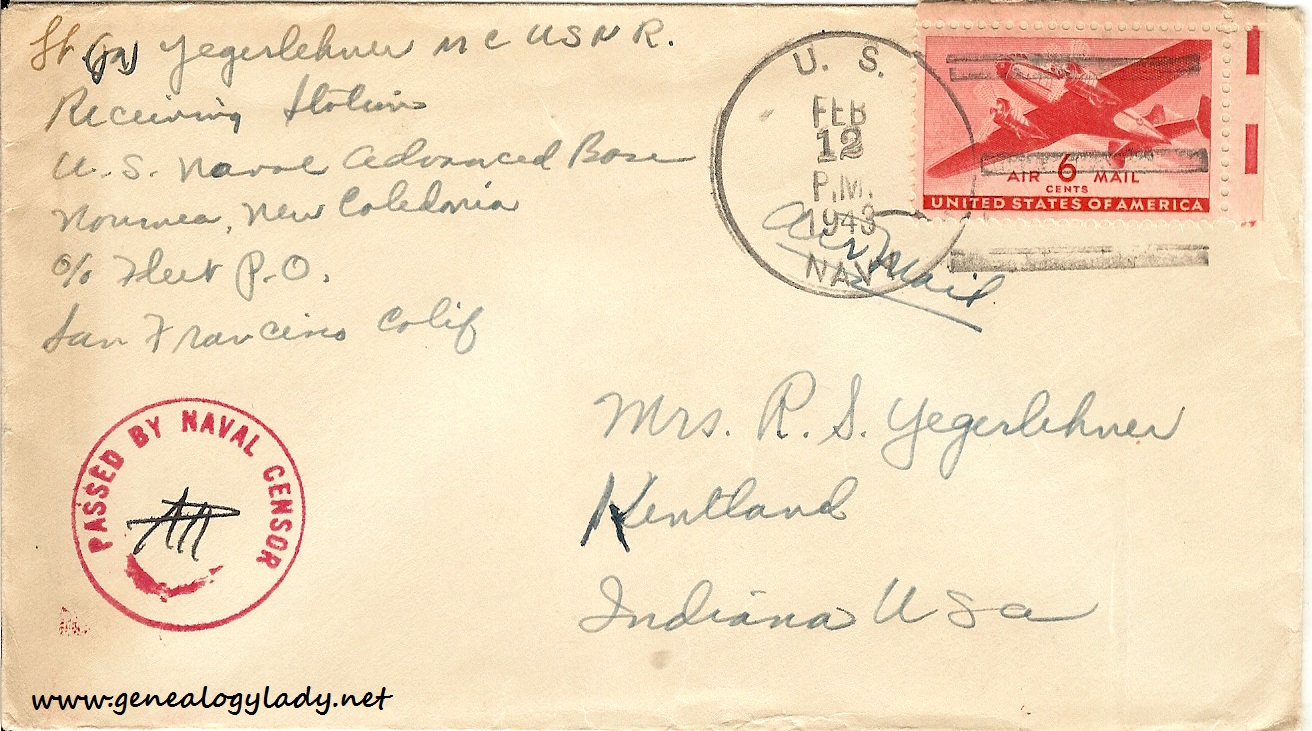 Lt (jg) Yegerlehner MC USNR.
Receiving Station
U.S. Naval Advanced Base
Noumea, New Caledonia
c/o Fleet P.O.
San Francisco Calif
U. S.
FEB
12
P.M.
1943
NAVY
AIR 6 MAIL
CENTS
UNITED STATES OF AMERICA
Air Mail
Mrs. R. S. Yegerlehner
Kentland
Indiana USA
PASSED BY NAVAL CENSOR
www.genealogylady.net